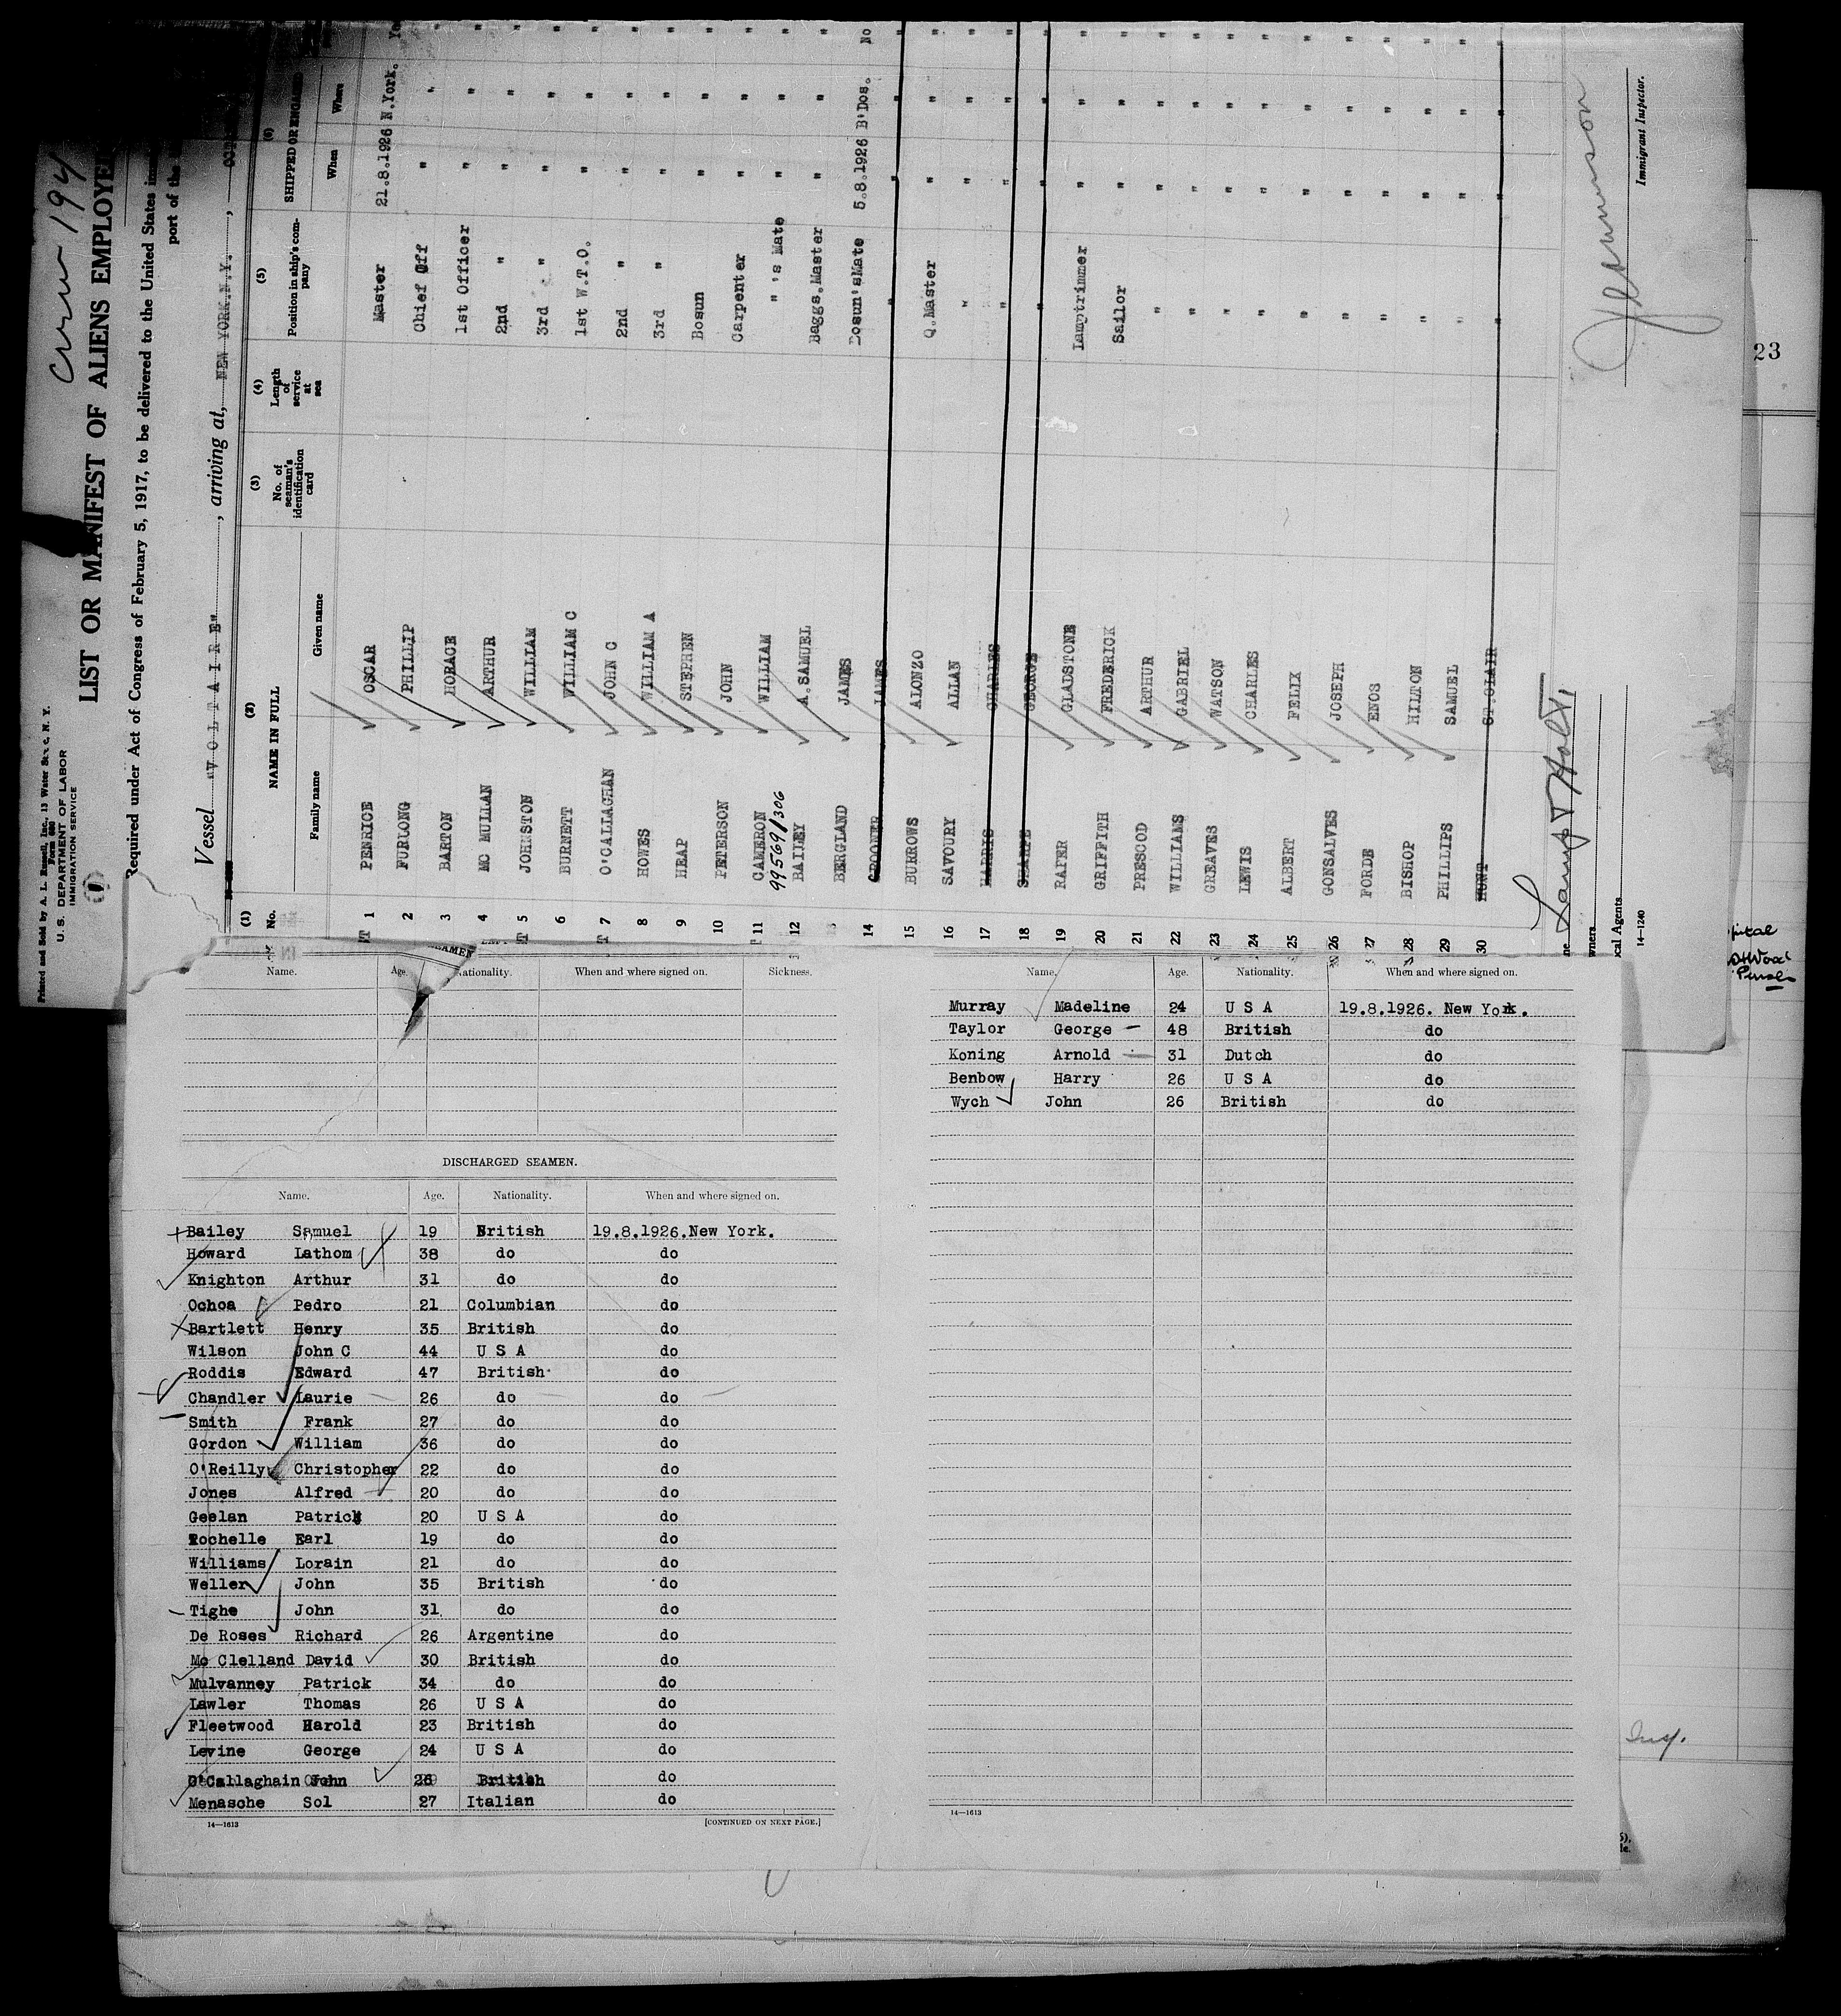 Crew 194
Printed and Sold by A. L. Russell, Inc., 13 Water St., N. Y.
Form 680
U. S. DEPARTMENT OF LABOR
IMMIGRATION SERVICE
LIST OR MANIFEST OF ALIENS EMPLOYE
Required under Act of Congress of February 5, 1917, to be delivered to the United States
port of the
Vessel "V O L T A I R E", arriving at, NEW YORK.N.Y.,
(1) (2) (3) (4) (5) (6)
No. NAME IN FULL No. of seaman's identification card Length of service at sea Position in ship's company SHIPPED OR ENGAGED
Family name Given name When Where
1 PENRICE OSCAR Master 21.8.1926 N.York.
2 FURLONG PHILLIP Chief Off " "
3 BARTON HORACE 1st Officer " "
4 MC MULLAN ARTHUR 2nd " " "
5 JOHNSTON WILLIAM 3rd " " "
6 BURNETT WILLIAM C 1st W.T.O. " "
7 O'CALLAGHAN JOHN C 2nd " " "
8 HOWES WILLIAM A 3rd " " "
9 HEAP STEPHEN Bosun " "
10 PETERSON JOHN Carpenter " "
11 CAMERON WILLIAM " 's Mate " "
99569/306
12 BAILEY A.SAMUEL Baggs.Master " "
BERGLAND JAMES Bosun'sMate 5.8.1926 B'Dos. No
14 JAMES " " "
15 BURROWS ALONZO Q.Master " "
16 SAVOURY ALLAN " " "
17 HARRIS CHARLES " " "
18 SHARPE GEORGE " " "
19 RAPER GLADSTONE Lamptrimmer " "
20 GRIFFITH FREDERICK Sailor " "
21 PRESCOD ARTHUR " " "
22 WILLIAMS GABRIEL " " "
23 GREAVES WATSON " " "
24 LEWIS CHARLES " " "
25 ALBERT FELIX " "
26 GONSALVES JOSEPH " " "
27 FORDE ENOS " " "
28 BISHOP HILTON " " "
29 PHILLIPS SAMUEL " " "
30 HUNT ST.CLAIR " " "
Lamport & Holt,
wners
cal Agents
14—1240
Immigrant Inspector.
23
Name. Age. Nationality. When and where signed on. Sickness.
DISCHARGED SEAMEN.
Name. Age. Nationality. When and where signed on.
Bailey Samuel 19 British 19.8.1926.New York.
Howard Lathom 38 do do
Knighton Arthur 31 do do
Ochoa Pedro 21 Columbian do
Bartlett Henry 35 British do
Wilson John C 44 U S A do
Roddis Edward 47 British do
Chandler Laurie 26 do do
Smith Frank 27 do do
Gordon William 36 do do
O'Reilly Christopher 22 do do
Jones Alfred 20 do do
Geelan Patrick 20 U S A do
Rochelle Earl 19 do do
Williams Lorain 21 do do
Weller John 35 British do
Tighe John 31 do do
De Roses Richard 26 Argentine do
Mc Clelland David 30 British do
Mulvanney Patrick 34 do do
Lawler Thomas 26 U S A do
Fleetwood Harold 23 British do
Levine George 24 U S A do
O'Callaghain John 26 British do
Menasche Sol 27 Italian do
14—1613 [CONTINUED ON NEXT PAGE.]
Name. Age. Nationality. When and where signed on.
Murray Madeline 24 U S A 19.8.1926. New York.
Taylor George 48 British do
Koning Arnold 31 Dutch do
Benbow Harry 26 U S A do
Wych John 26 British do
14—1613
Insp.